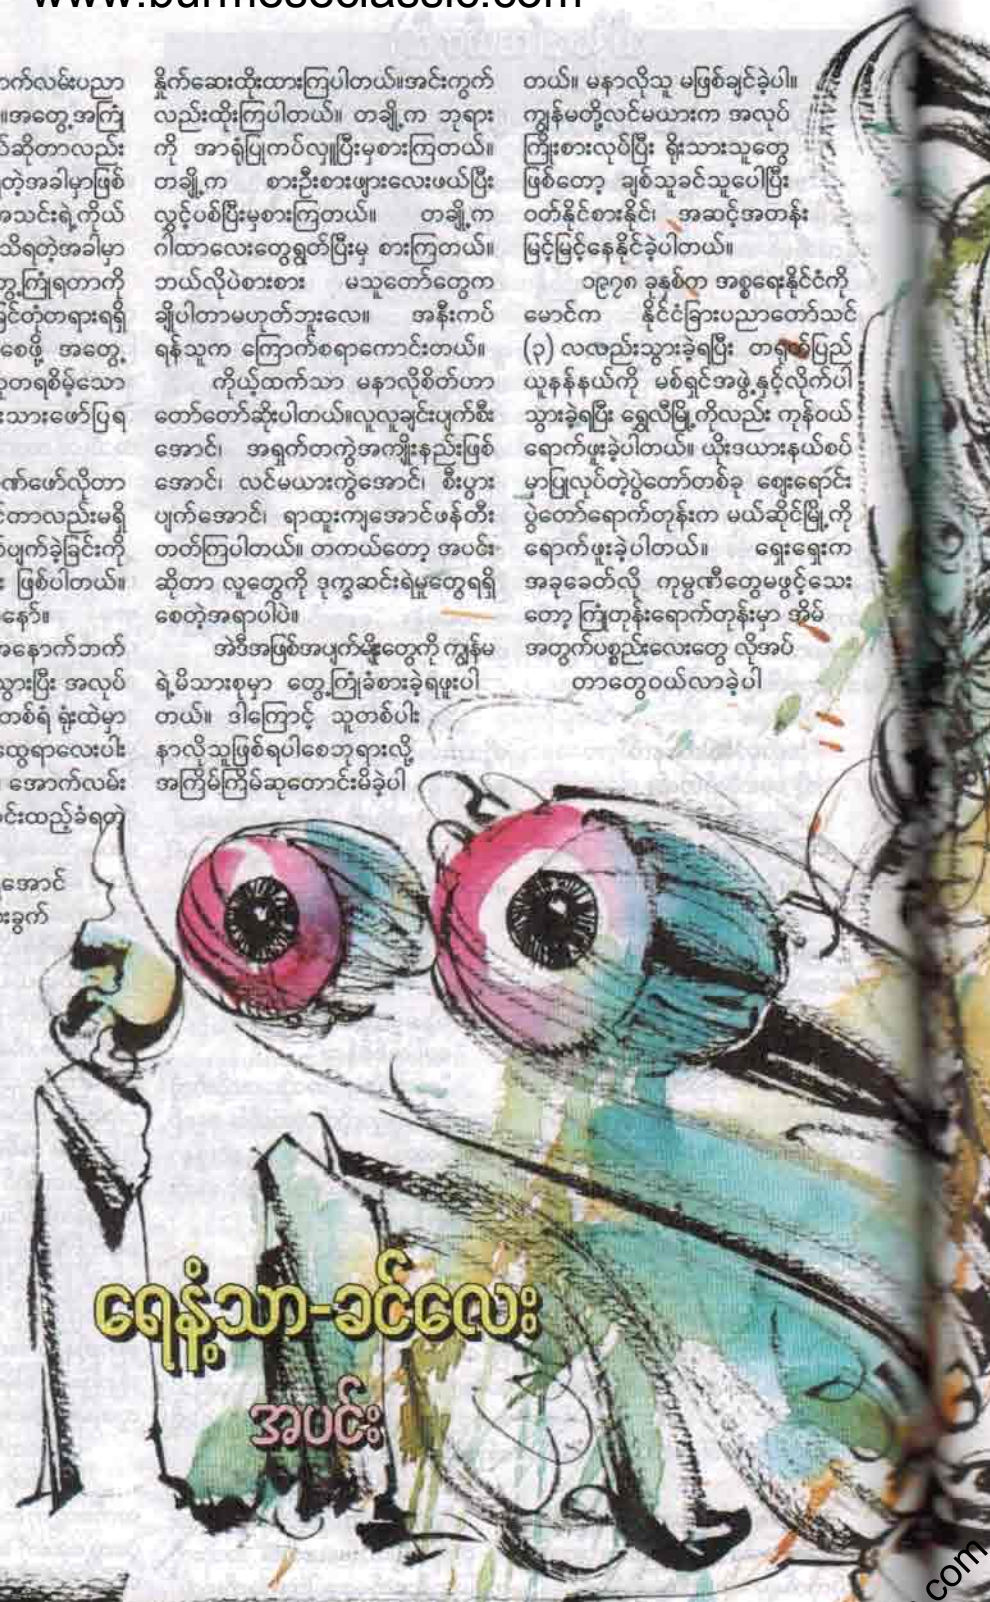 www.burmeseclassic.com
က်လမ်းပညာ
။အတွေ့အကြုံ
်ဆိုတာလည်း
တဲ့အခါမှာဖြစ်
အသင်းရဲ့ကိုယ်
သိရတဲ့အခါမှာ
တွေ့ကြုံရတာကို
မြင်တုံတရားရရှိ
စေဖို့ အတွေ့
ူတရစိမ့်သော
းသားဖော်ပြရ
ဏ်ဖော်လိုတာ
်တာလည်းမရှိ
်ပျက်ခဲ့ခြင်းကို
း ဖြစ်ပါတယ်။
နော်။
အနောက်ဘက်
သွားပြီး အလုပ်
တစ်ရံ ရုံးထဲမှာ
ထွေရာလေးပါး
အောက်လမ်း
င်းထည့်ခံရတဲ့
အောင်
းခွက်
နှိုက်ဆေးထိုးထားကြပါတယ်။အင်းကွက်
လည်းထိုးကြပါတယ်။ တချို့က ဘုရား
ကို အာရုံပြုကပ်လှူပြီးမှစားကြတယ်။
တချို့က စားဦးစားဖျားလေးဖယ်ပြီး
လွှင့်ပစ်ပြီးမှစားကြတယ်။ တချို့က
ဂါထာလေးတွေရွတ်ပြီးမှ စားကြတယ်။
ဘယ်လိုပဲစားစား မသူတော်တွေက
ချိုပါတာမဟုတ်ဘူးလေ။ အနီးကပ်
ရန်သူက ကြောက်စရာကောင်းတယ်။
ကိုယ့်ထက်သာ မနာလိုစိတ်ဟာ
တော်တော်ဆိုးပါတယ်။လူလူချင်းပျက်စီး
အောင်၊ အရှက်တကွဲအကျိုးနည်းဖြစ်
အောင်၊ လင်မယားကွဲအောင်၊ စီးပွား
ပျက်အောင်၊ ရာထူးကျအောင်ဖန်တီး
တတ်ကြပါတယ်။ တကယ်တော့ အပင်း
ဆိုတာ လူတွေကို ဒုက္ခဆင်းရဲမှုတွေရရှိ
စေတဲ့အရာပါပဲ။
အဲဒီအဖြစ်အပျက်မျိုးတွေကို ကျွန်မ
ရဲ့မိသားစုမှာ တွေ့ကြုံခံစားခဲ့ရဖူးပါ
တယ်။ ဒါကြောင့် သူတစ်ပါး
နာလိုသူဖြစ်ရပါစေဘုရားလို့
အကြိမ်ကြိမ်ဆုတောင်းမိခဲ့ပါ
တယ်။ မနာလိုသူ မဖြစ်ချင်ခဲ့ပါ။
ကျွန်မတို့လင်မယားက အလုပ်
ကြိုးစားလုပ်ပြီး ရိုးသားသူတွေ
ဖြစ်တော့ ချစ်သူခင်သူပေါပြီး
ဝတ်နိုင်စားနိုင်၊ အဆင့်အတန်း
မြင့်မြင့်နေနိုင်ခဲ့ပါတယ်။
၁၉၇၈ ခုနှစ်က အစ္စရေးနိုင်ငံကို
မောင်က နိုင်ငံခြားပညာတော်သင်
(၃) လလည်းသွားခဲ့ရပြီး တရုတ်ပြည်
ယူနန်နယ်ကို မစ်ရှင်အဖွဲ့နှင့်လိုက်ပါ
သွားခဲ့ရပြီး ရွှေလီမြို့ကိုလည်း ကုန်ဝယ်
ရောက်ဖူးခဲ့ပါတယ်။ ယိုးဒယားနယ်စပ်
မှာပြုလုပ်တဲ့ပွဲတော်တစ်ခု ဈေးရောင်း
ပွဲတော်ရောက်တုန်းက မယ်ဆိုင်မြို့ကို
ရောက်ဖူးခဲ့ပါတယ်။ ရှေးရှေးက
အခုခေတ်လို ကုမ္ပဏီတွေမဖွင့်သေး
တော့ ကြုံတုန်းရောက်တုန်းမှာ အိမ်
အတွက်ပစ္စည်းလေးတွေ လိုအပ်
တာတွေဝယ်လာခဲ့ပါ
ရေနံ့သာ-ခင်လေး
အပင်း
.com